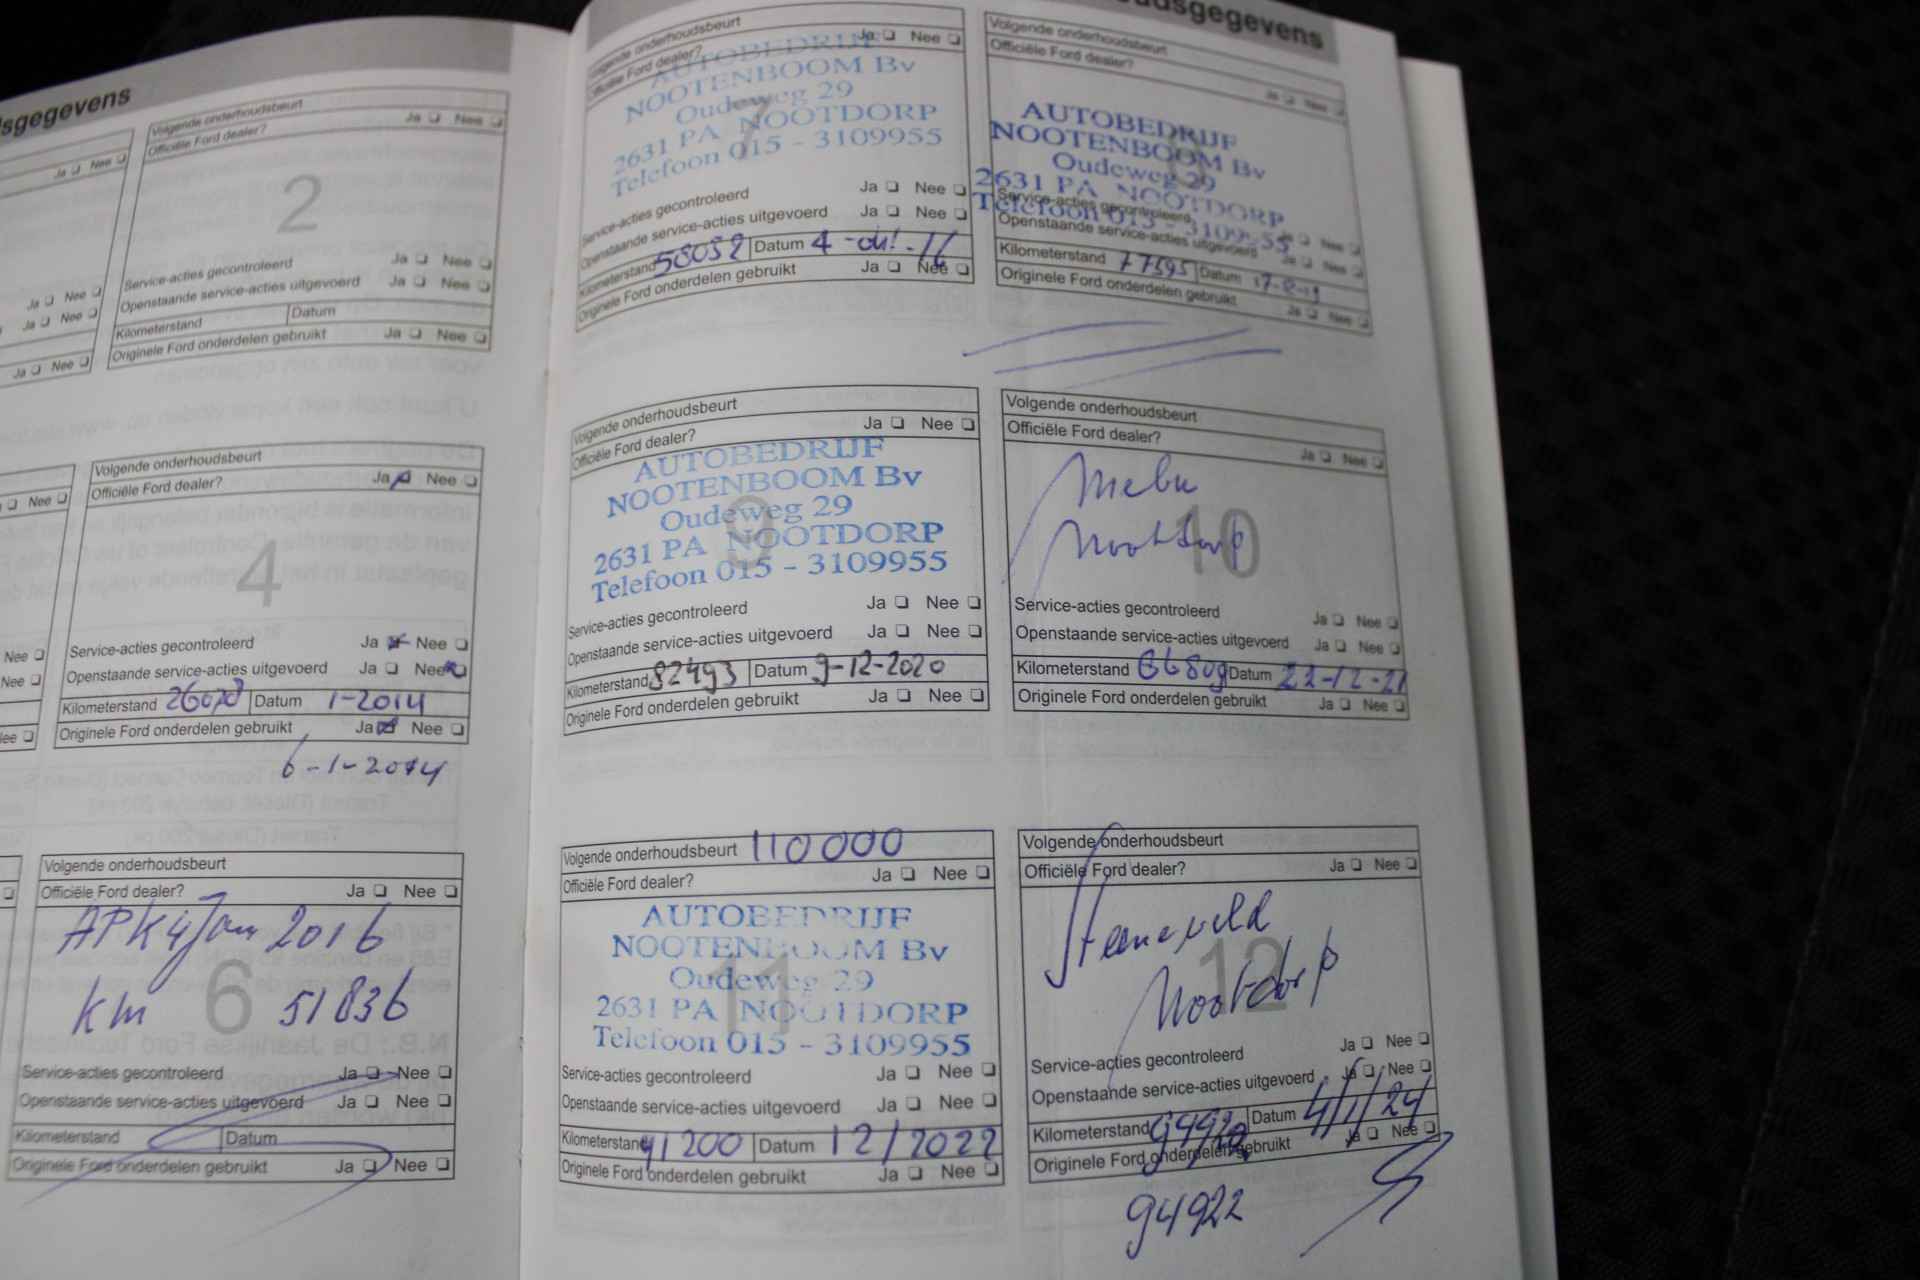 sgegevens
Ja Nee
Ja Nee
Ja Nee
Ja Nee
Nee
Nee
Nee
Volgende onderhoudsbeurt
Officiële Ford dealer? Ja Nee
2
Service-acties gecontroleerd Ja Nee
Openstaande service-acties uitgevoerd Ja Nee
Kilometerstand Datum
Originele Ford onderdelen gebruikt Ja Nee
Volgende onderhoudsbeurt
Officiële Ford dealer? Ja Nee
4
Service-acties gecontroleerd Ja Nee
Openstaande service-acties uitgevoerd Ja Nee
Kilometerstand Datum 1-2014
Originele Ford onderdelen gebruikt Ja Nee
6-1-2014
Volgende onderhoudsbeurt
Officiële Ford dealer? Ja Nee
APK 4 Jan 2016
6
km 51836
Service-acties gecontroleerd Ja Nee
Openstaande service-acties uitgevoerd Ja Nee
Kilometerstand Datum
Originele Ford onderdelen gebruikt Ja Nee
udsgegevens
Volgende onderhoudsbeurt
Officiële Ford dealer? Ja Nee
AUTOBEDRIJF
NOOTENBOOM Bv
Oudeweg 29
7
2631 PA NOOTDORP
Telefoon 015 - 3109955
Service-acties gecontroleerd Ja Nee
Openstaande service-acties uitgevoerd Ja Nee
Kilometerstand 58032 Datum 4 -okt.-16
Originele Ford onderdelen gebruikt Ja Nee
Volgende onderhoudsbeurt
Officiële Ford dealer? Ja Nee
AUTOBEDRIJF
NOOTENBOOM Bv
Oudeweg 29
2631 PA NOOTDORP
Telefoon 015 - 3109955
Service-acties gecontroleerd Ja Nee
Openstaande service-acties uitgevoerd Ja Nee
Kilometerstand 77595 Datum
Originele Ford onderdelen gebruikt Ja Nee
Volgende onderhoudsbeurt
Officiële Ford dealer? Ja Nee
AUTOBEDRIJF
NOOTENBOOM Bv
Oudeweg 29
9
2631 PA NOOTDORP
Telefoon 015 - 3109955
Service-acties gecontroleerd Ja Nee
Openstaande service-acties uitgevoerd Ja Nee
Kilometerstand 82493 Datum 9-12-2020
Originele Ford onderdelen gebruikt Ja Nee
Volgende onderhoudsbeurt
Officiële Ford dealer? Ja Nee
Nootdorp
10
Service-acties gecontroleerd Ja Nee
Openstaande service-acties uitgevoerd Ja Nee
Kilometerstand Datum
Originele Ford onderdelen gebruikt Ja Nee
Volgende onderhoudsbeurt 110000
Officiële Ford dealer? Ja Nee
AUTOBEDRIJF
NOOTENBOOM Bv
Oudeweg 29
11
2631 PA NOOTDORP
Telefoon 015 - 3109955
Service-acties gecontroleerd Ja Nee
Openstaande service-acties uitgevoerd Ja Nee
Kilometerstand 91200 Datum 12/2022
Originele Ford onderdelen gebruikt Ja Nee
Volgende onderhoudsbeurt
Officiële Ford dealer? Ja Nee
12
Nootdorp
Service-acties gecontroleerd Ja Nee
Openstaande service-acties uitgevoerd Ja Nee
Kilometerstand Datum 4/1/24
Originele Ford onderdelen gebruikt Ja Nee
94922